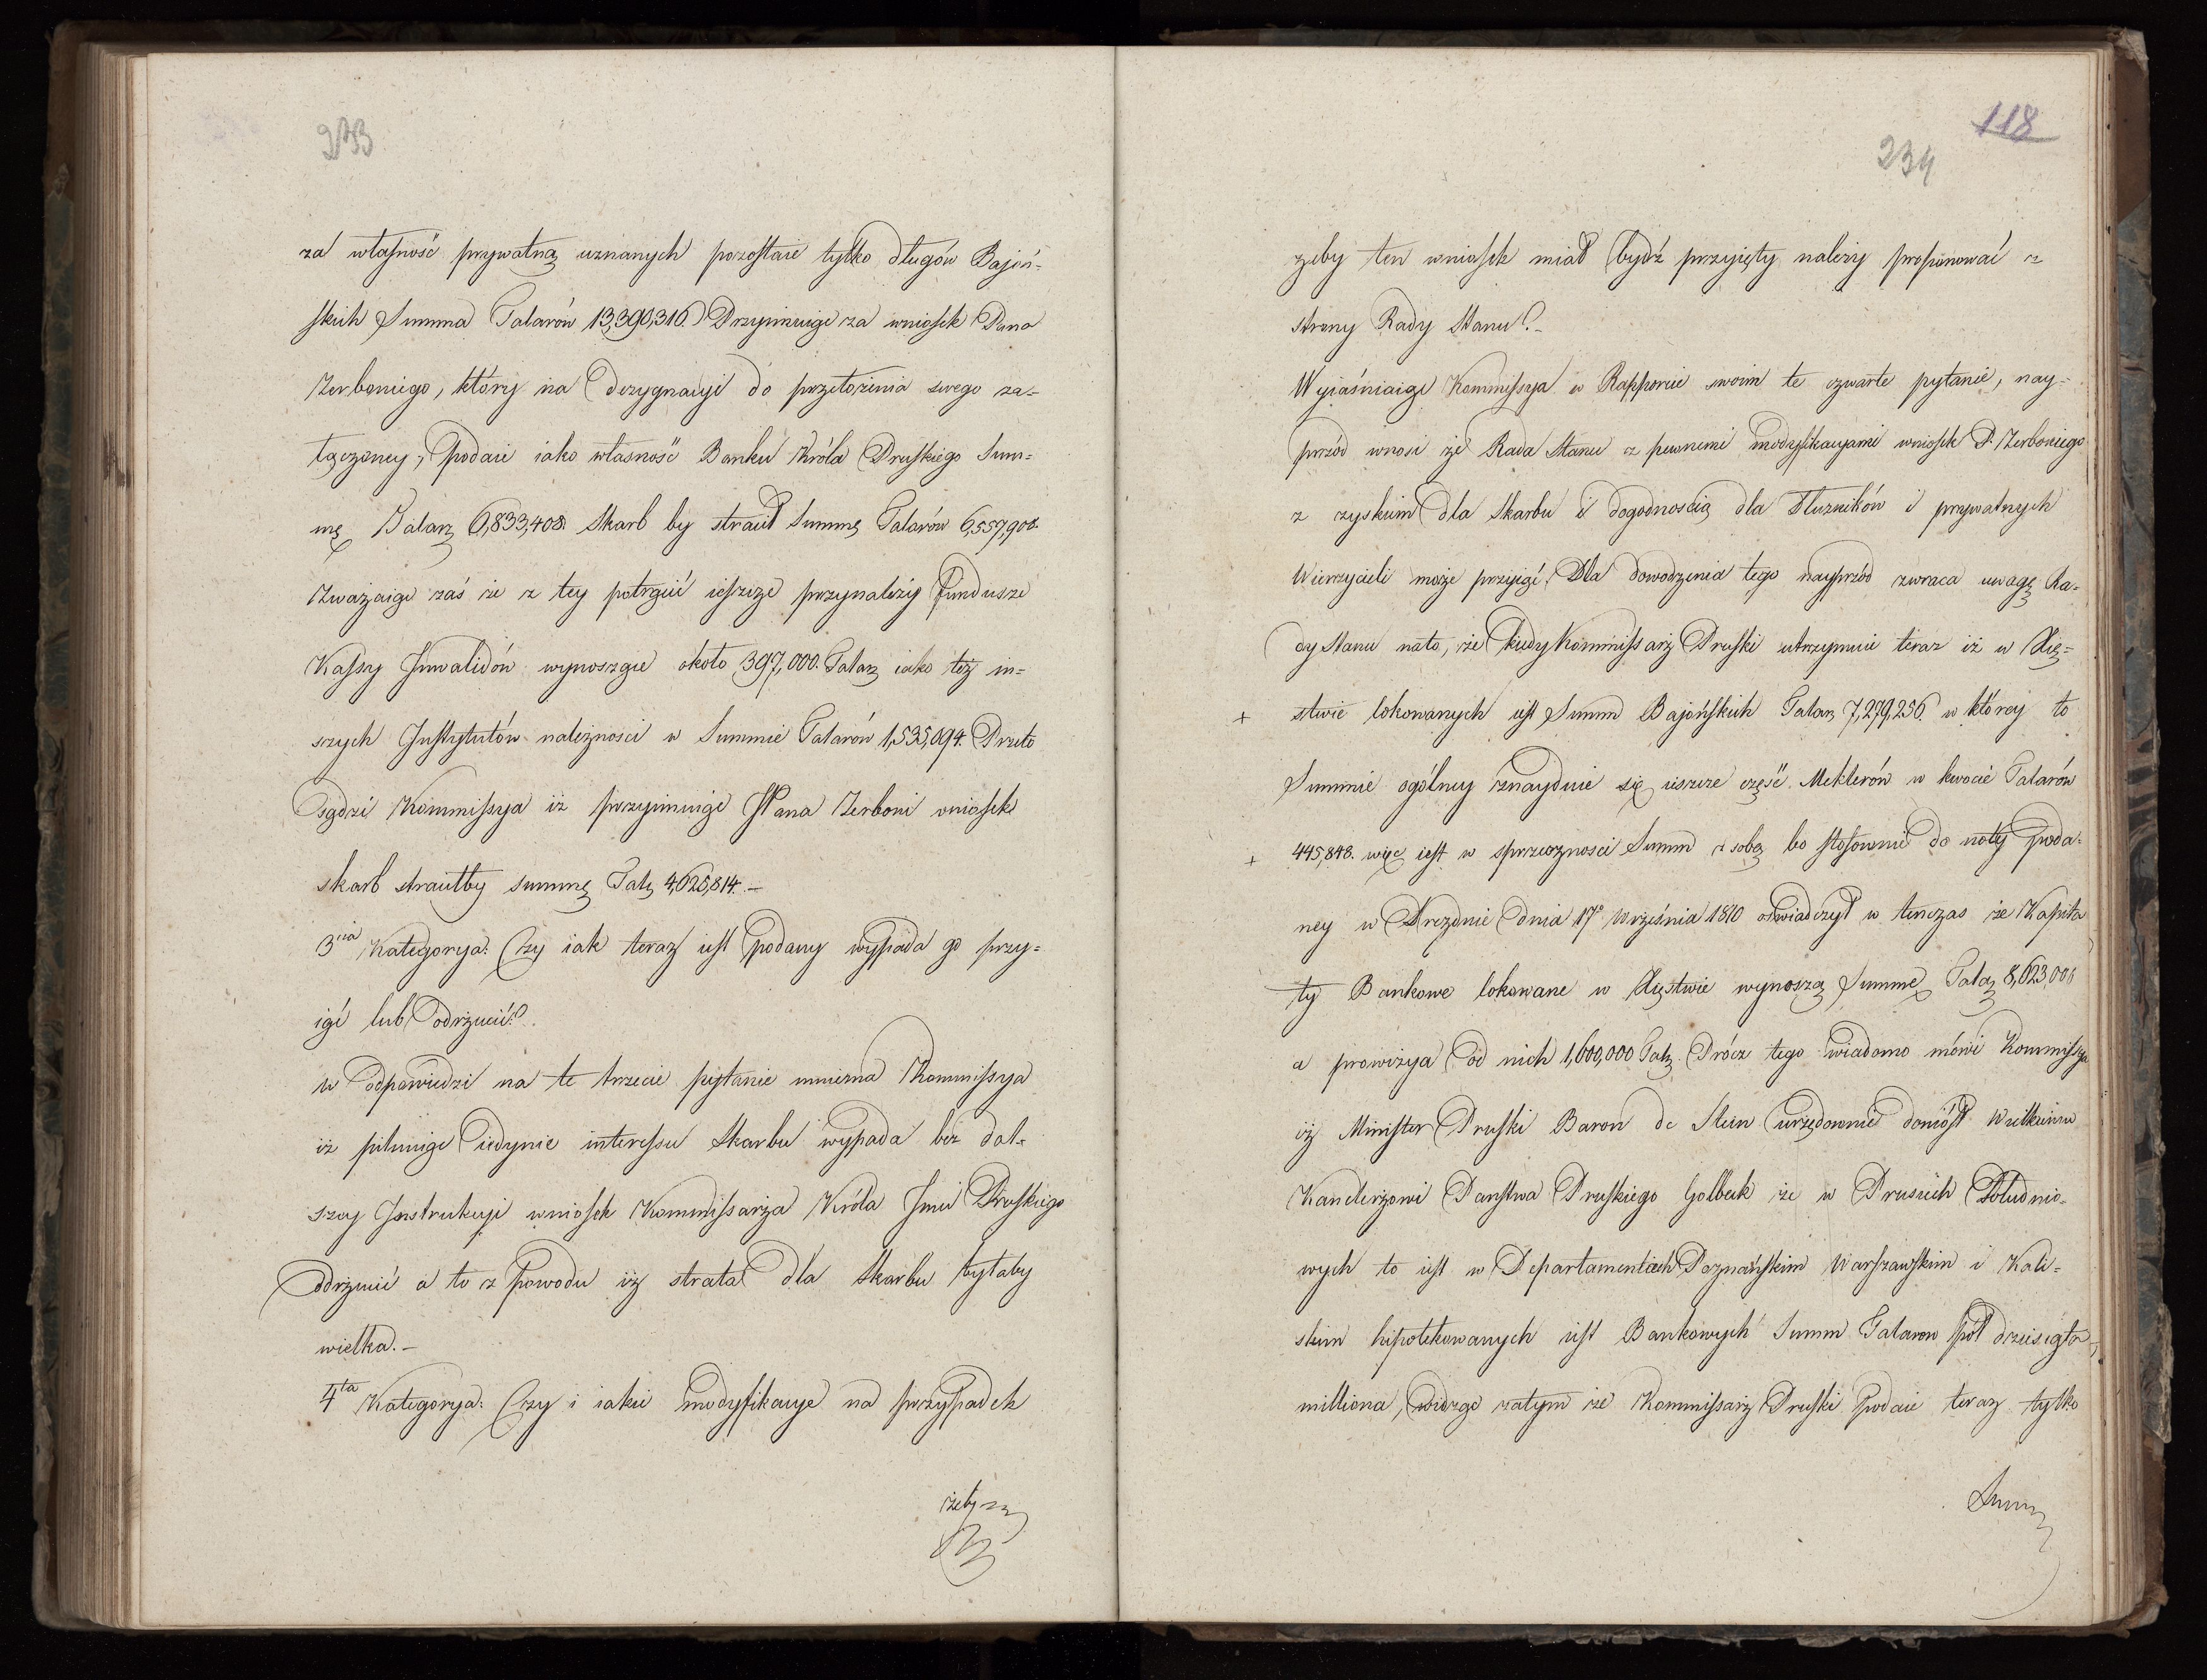 233
za własność prywatną uznanych pozostaie tylko długów Bajoń-
skich Summa Talarów 13,390,316. Przyimuiąc za wniosek Pana
Zerboniego, który na dezygnacyi do przełożenia swego za-
łączoney, podaie iako własność Banku Króla Pruskiego Sum-
mę Talarz 6,833,408. Skarb by stracił Summę Talarów 6,557,908.
Zważaiąc zaś że z tey potrącić ieszcze przynależy Fundusze
Kassy Inwalidów wynoszące około 397,000. Talarz iako też in-
szych Instytutów należności w Summie Talarów 1,535,094. Przeto
sądzi Kommissya iż przyimuiąc JPana Zerboni wniosek
skarb straciłby summę Talz 4,625,814.-
3cia Kategorya: Czy iak teraz iest podany wypada go przy-
iąć lub odrzucić?
w odpowiedzi na te trzecie pytanie mniema Kommissya
iż pilnuiąc iedynie interessu Skarbu wypada bez dal-
szey Instrukcyi wniosek Kommissarza Króla Jmci Pruskiego
odrzucić a to z powodu iż strata dla Skarbu byłaby
wielka.-
4ta Kategorya: Czy i iakie modyfikacye na przypadek
żeby
118
234
żeby ten wniosek miał bydź przyięty należy proponować z
strony Rady Stanu?-
Wyiaśniaiąc Kommissya w Rapporcie swoim te czwarte pytanie, nay-
przód wnosi że Rada Stanu z pewnemi modyfikacyami wniosek P. Zerboniego
z zyskiem dla Skarbu i dogodnością dla Dłużników i prywatnych
Wierzycieli może przyiąć. Dla dowodzenia tego nayprzód zwraca uwagę Ra-
dy Stanu nato, że kiedy Kommissarz Pruski utrzymuie teraz iż w Xię-
+ stwie lokowanych iest Summ Bajońskich Talarz 7,279,256. w którey to
Summie ogólney znayduie się ieszcze część Meklerów w kwocie Talarów
+ 445,848. więc iest w sprzeczności Summ z sobą bo stosownie do noty poda-
ney w Dreznie dnia 17o Września 1810 oświadczył w tenczas że Kapita
ły Bankowe lokowane w Xięstwie wynoszą Summę Talarz 8,623,000
a prowizya od nich 1,600,000 Talz. Prócz tego wiadomo mówi Kommissya
iż Minister Pruski Baron de Stein urzędownie doniósł Wielkiemu
Kanclerzowi Państwa Pruskiego Golbek że w Prusiech Południo-
wych to iest w Departamentach Poznańskim Warszawskim i Kali-
skim hipotekowanych iest Bankowych Summ Talarow pół dziesiąta
milliona, widząc zatym że Kommissarz Pruski podaie teraz tylko
Summ